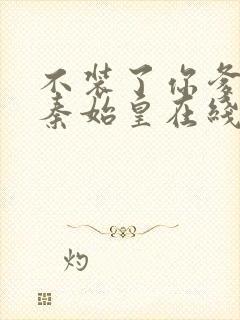 不装了你爹
秦始皇在綫
灼